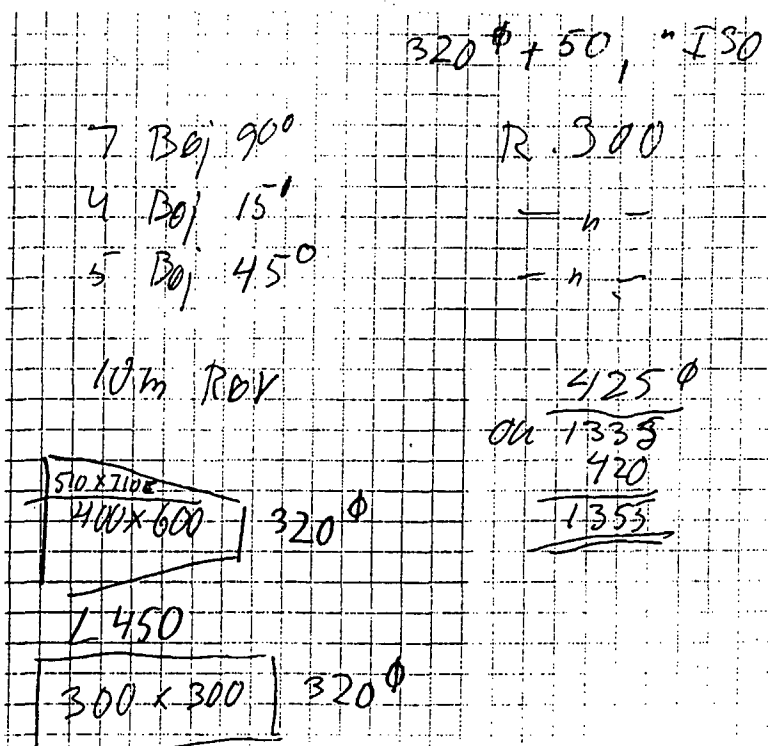 320ø + 50, " ISO
7 Böj 90° R. 300
4 Böj 15° — " —
5 Böj 45° — " —
10m Rör
425ø
1335
420
1355
510 x 710
400 x 600 320ø
L 450
300 x 300 320ø